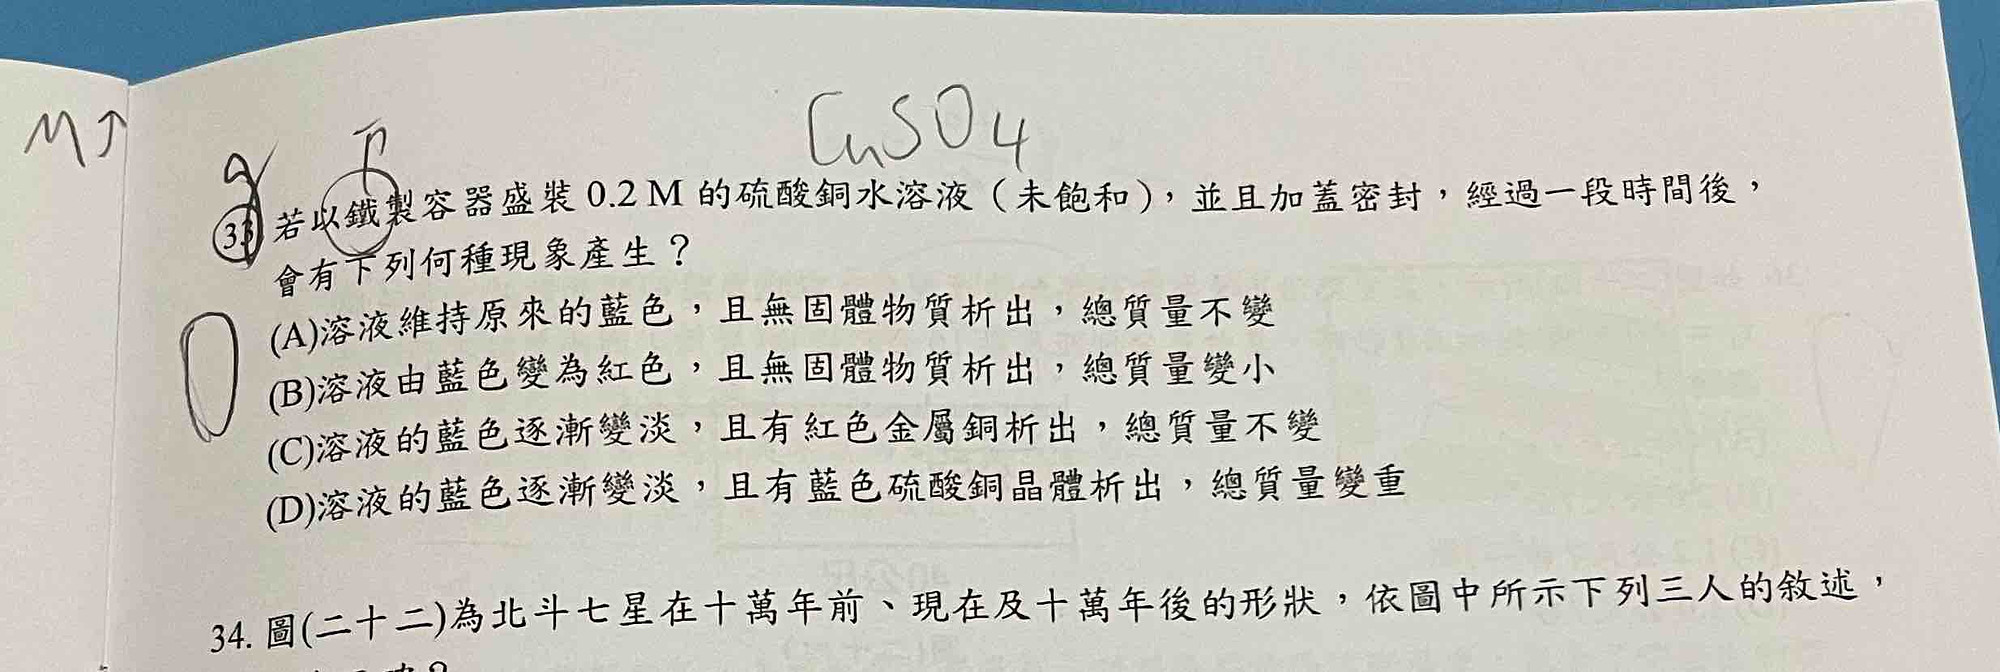 CuSO4
M↑
33 若以鐵製容器盛裝 0.2 M 的硫酸銅水溶液（未飽和），並且加蓋密封，經過一段時間後，
會有下列何種現象產生？
(A)溶液維持原來的藍色，且無固體物質析出，總質量不變
(B)溶液由藍色變為紅色，且無固體物質析出，總質量變小
(C)溶液的藍色逐漸變淡，且有紅色金屬銅析出，總質量不變
(D)溶液的藍色逐漸變淡，且有藍色硫酸銅晶體析出，總質量變重
34. 圖(二十二)為北斗七星在十萬年前、現在及十萬年後的形狀，依圖中所示下列三人的敘述，